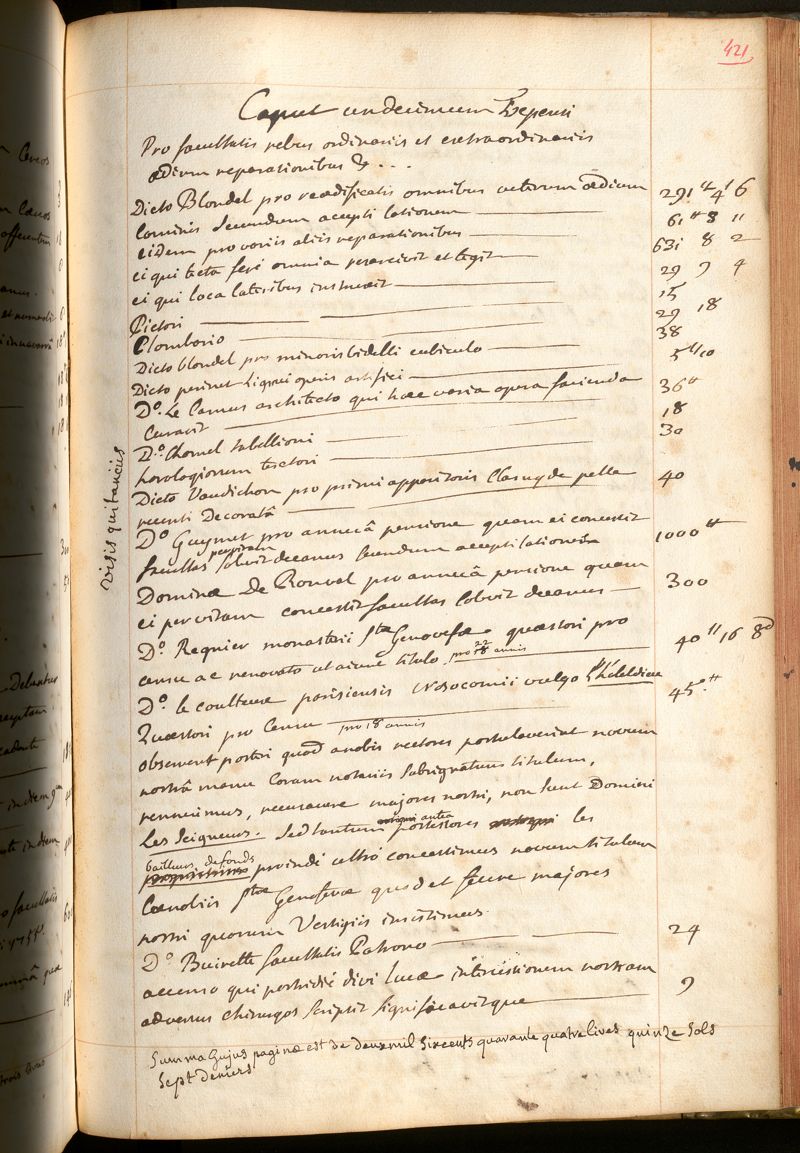 421
Caput undecimum Expensi
Pro facultatis rebus ordinariis et extraordinariis
ædium reparationibus &. . . .
Dicto Blondel pro reædificatis omnibus veterum ædium 291 ʰ 4ˢ 6
caminis secundum accepti lationem 61 ʰ 8 "
eidem pro variis aliis reparationibus 631 8 2
ei qui tecta ferè omnia resarcivit et tegit 29 9 4
ei qui loca lateribus instruxit 15
Pictori 29 18
Plombario 38
Dicto blondel pro minoris bidelli cubiculo 5 ʰ 10
Dicto perinet Lignei operis artifici 36 ʰ
D.º Le Camus architecto qui hæc varia opera facienda
Curavit 18
D.º Chomel tabellioni 30
horologiorum textori
Dicto Vaudichon pro primi apparitoris Clava de pelle
recenti Decoratâ 40
visis quitanciis
D.º Guymet pro annuâ pensione quam ei concessit
facultas solvit decanus secundum accepti lationem 1000 ʰ
Dominæ De Bonval pro annuâ pensione quam
ei per vitam concessit facultas solvit decanus 300
D.º Regnier monasterii Stæ Genovefæ quæstori pro
censu ac renovato ut aiunt titulo pro 22 annis 40 ʰ 16 8 ᵈ
D.º le coulteux parisiensis Nosocomii vulgo l'hôteldieu
Quæstori pro Censu pro 18 annis 45 ʰ
observent postri quod a nobis rectores postulaverint novum
nostrâ manu Coram notariis subsignatum titulum,
renuimus, recusavere majores nostri, non sunt Domini
Les Seigneurs. Sed tantum antea possessores les
bailleurs de fonds proindè ultrò concessimus novum titulum
Cænobiis Stæ Genofevæ quod et fecere majores
nostri quorum Vestigiis institimus.
D.º Buirette facultatis Patrono 24
accenso qui postridiè divi lucæ intercessionem nostram
adversus chirurgos scripsit significavitque 9
Summa hujus paginæ est de deux mil six cents quarante quatre livres quinze sols
sept deniers